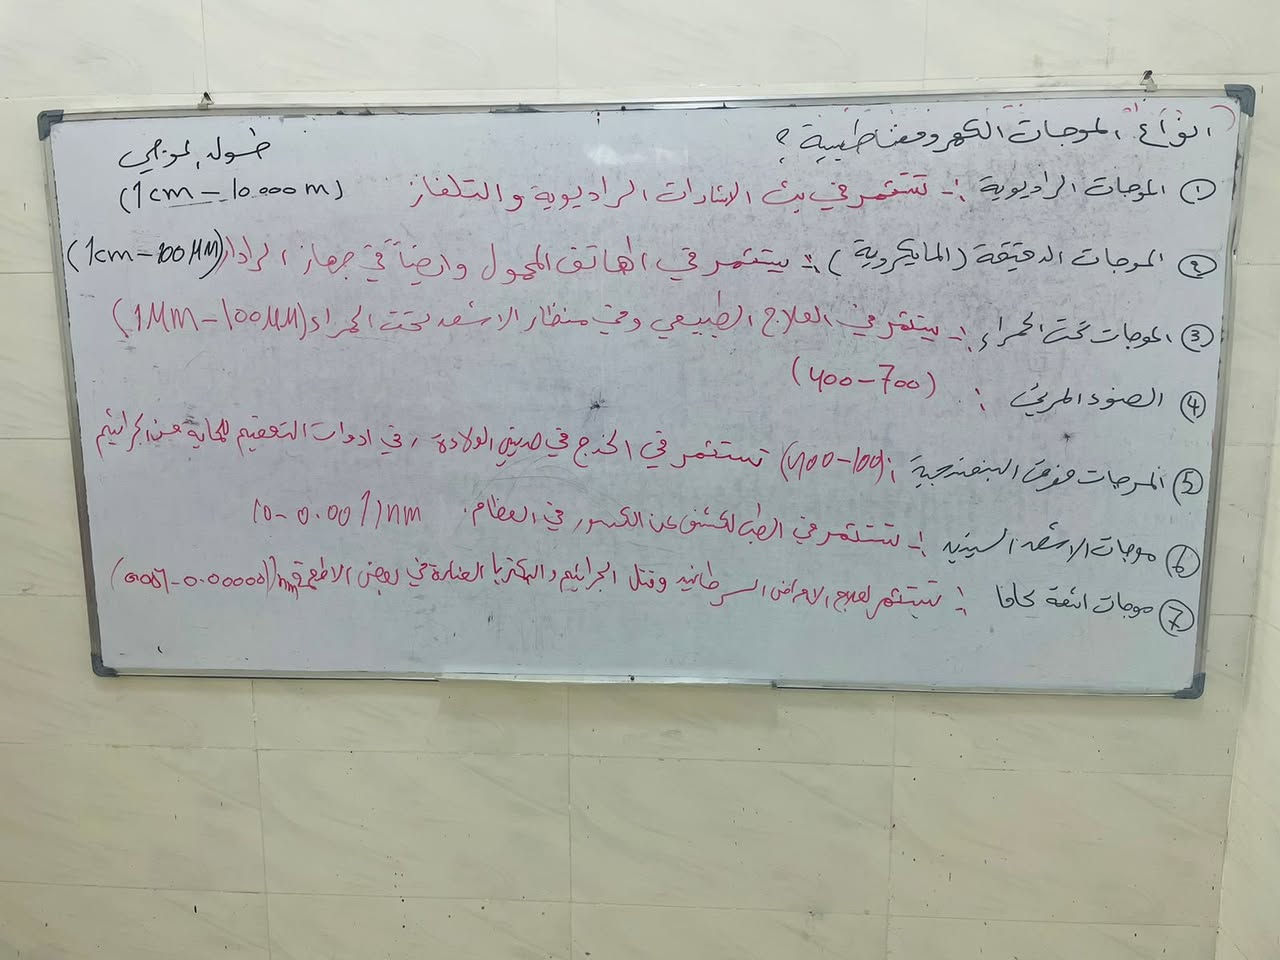 انواع الموجات الكهرومغناطيسية ؟ طوله الموجي
① الموجات الراديوية :- تستثمر في بث الاشارات الراديوية والتلفاز (1cm - 10.000m)
② الموجات الدقيقة (المايكروية) :- يستثمر في الهاتف المحمول وايضاً في جهاز الرادار (1cm - 100μM)
③ الموجات تحت الحمراء :- يستثمر في العلاج الطبيعي وفي منظار الاشعه تحت الحمراء (1MM - 100μM)
④ الضوء المرئي : (400-700)
⑤ الموجات فوق البنفسجية : (400-100) تستثمر في الخدج في حديثي الولادة , في ادوات التعقيم للحماية من الجراثيم
⑥ موجات الاشعه السينيه :- تستثمر في الطب لكشف عن الكسور في العظام. 10-0.001)nm
⑦ موجات اشعة كاما :- تستثمر لعلاج الامراض السرطانيه وقتل الجراثيم والبكتريا الضارة في بعض الاطعمة (0.001-0.00000)nm